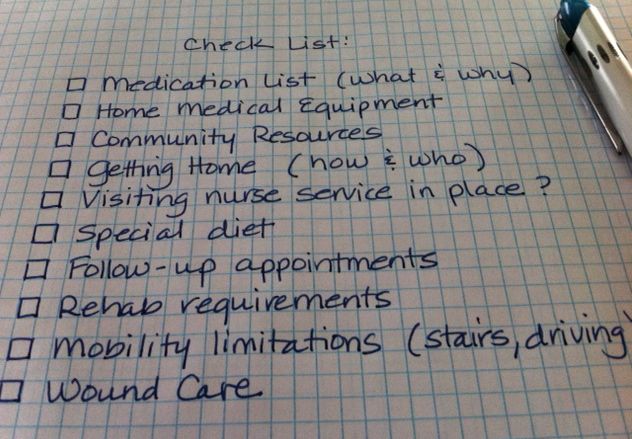 Check List:
☐ Medication List (what & why)
☐ Home Medical Equipment
☐ Community Resources
☐ Getting Home (how & who)
☐ Visiting nurse service in place?
☐ Special diet
☐ Follow-up appointments
☐ Rehab requirements
☐ Mobility limitations (stairs, driving)
☐ Wound Care